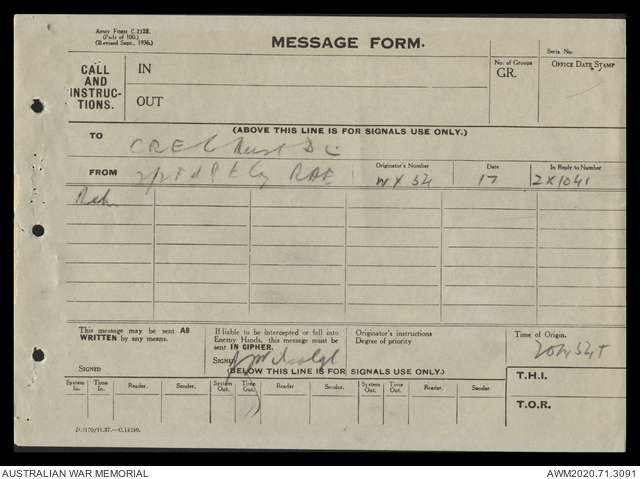 ARMY FORM C.2128.
(Pads of 100.)
(Revised Sept., 1936.)
MESSAGE FORM.
Serial No.
CALL AND INSTRUC-TIONS.
IN
OUT
No. of Groups
GR.
OFFICE DATE STAMP
(ABOVE THIS LINE IS FOR SIGNALS USE ONLY.)
TO CRE Aust
FROM 2/2 Fd P Coy RAE
Originator's Number WX 52
Date 17
In Reply to Number 2X1041
This message may be sent AS WRITTEN by any means.
SIGNED
If liable to be intercepted or fall into Enemy Hands, this message must be sent IN CIPHER.
SIGNED
Originator's instructions
Degree of priority
Time of Origin.
(BELOW THIS LINE IS FOR SIGNALS USE ONLY.)
T.H.I.
T.O.R.
System In. Time In. Reader. Sender. System Out. Time Out. Reader. Sender. System Out. Time Out. Reader. Sender.
AUSTRALIAN WAR MEMORIAL
AWM2020.71.3091